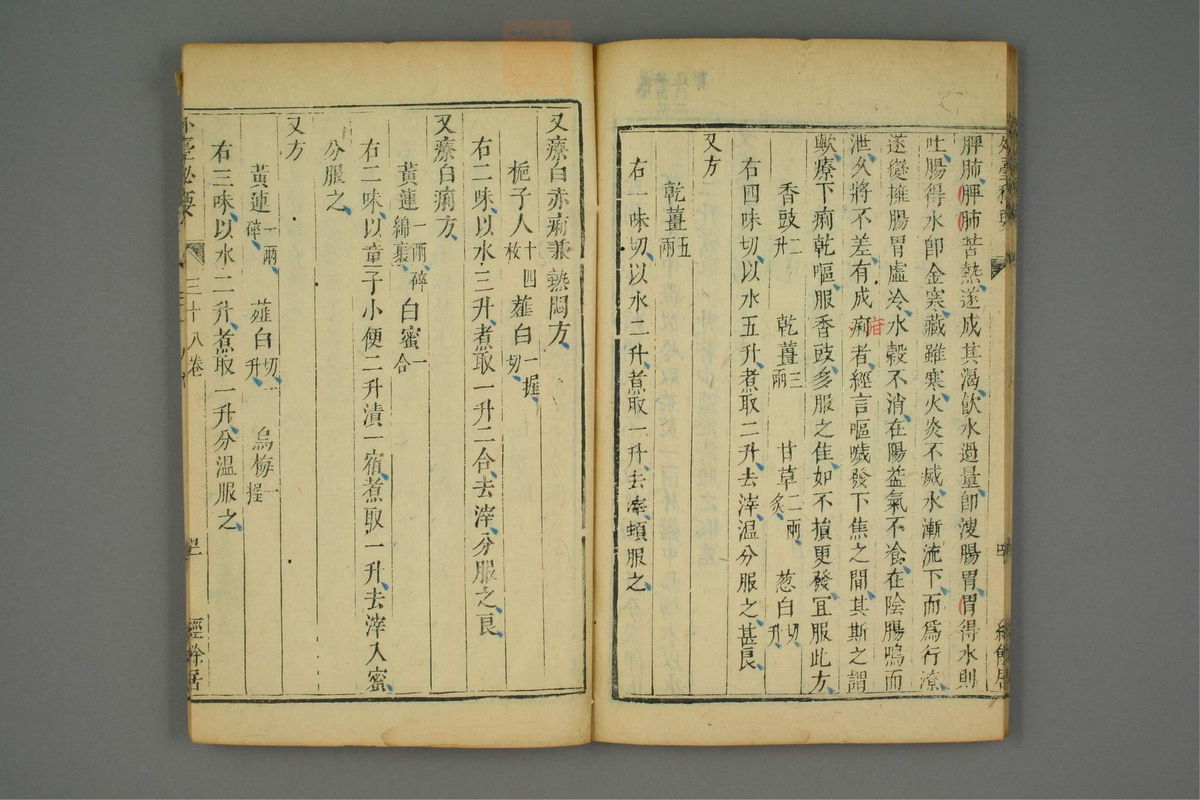 外臺秘要
脾肺脾肺苦熱遂成其渴飲水過量即溲腸胃胃得水則
吐腸得水即金寒藏雖寒火炎不滅水漸流下而爲行潦
遂變擁腸胃虛冷水穀不消在陽益氣不飡在陰腸鳴而
泄久將不差有成痢者經言嘔噦發下焦之間其斯之謂
疳
歟療下痢乾嘔服香豉多服之佳如不損更發宜服此方
香豉二升 乾薑三兩 甘草二兩炙 葱白切升
右四味切以水五升煮取二升去滓温分服之甚良
又方
乾薑五兩
右一味切以水二升煮取一升去滓頓服之
又療白赤痢兼熱悶方
梔子人十四枚 薤白一握切
右二味以水三升煮取一升二合去滓分服之良
又療白痢方
黃連一兩碎綿裹 白蜜一合
右二味以童子小便二升漬一宿煮取一升去滓入蜜
分服之
又方
黃連一兩碎 薤白切一升 烏梅一握
右三味以水二升煮取一升分温服之
外臺秘要 三十八卷 經餘居